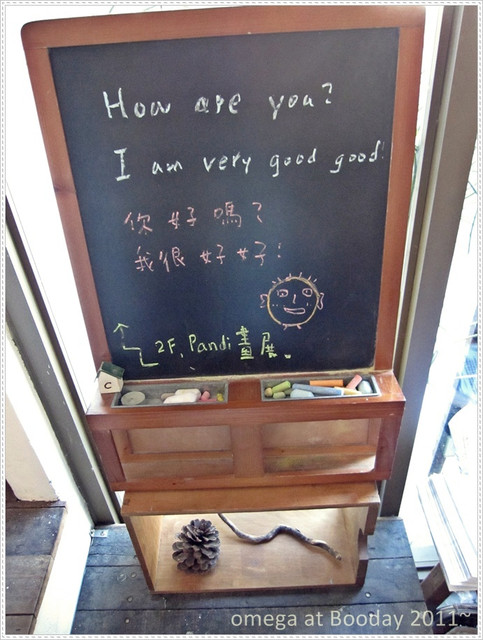 How are you?
I am very good good!
你好嗎?
我很好好!
2F, Pandi 畫展。
C
omega at Booday 2011~